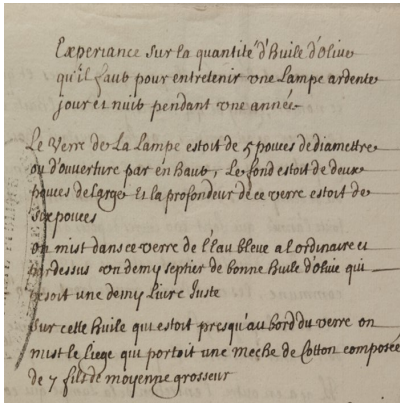 Experiance sur la quantité d'huile d'olive
qu'il faut pour entretenir une Lampe ardente
jour et nuit pendant une année
Le Verre de La Lampe estoit de 5 pouces de diamettre
ou d'ouverture par en haut, Le fond estoit de deux
pouces de large Et la profondeur de ce verre estoit de
six pouces
on mist dans ce verre de l'eau bleue a l'ordinaire et
par dessus un demy septier de bonne huile d'olive qui
pesoit une demy Livre Juste
sur cette huile qui estoit presqu'au bord du verre on
mist le Liege qui portoit une meche de Cotton composée
de 7 fils de moyenne grosseur